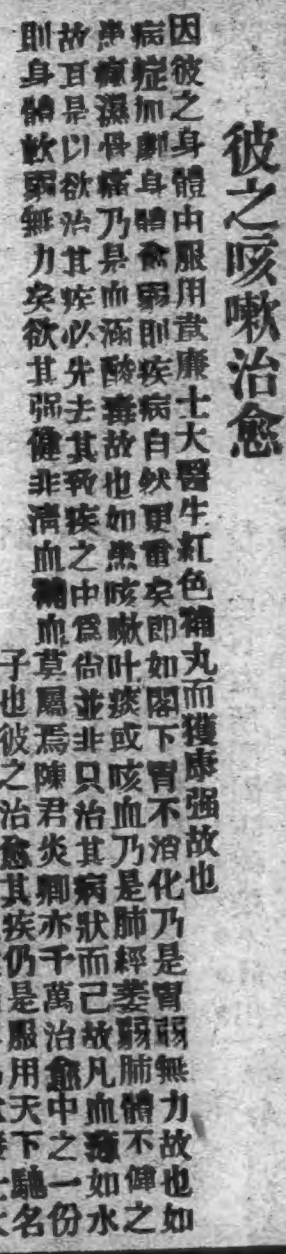 彼之咳嗽治愈
因彼之身體由服用韋廉士大醫生紅色補丸而獲康强故也
病症加劇身體愈弱則疾病自然更重矣即如閣下胃不消化乃是胃弱無力故也如
患瘋濕骨痛乃是血涵酸毒故也如患咳嗽吐痰或咳血乃是肺經萎弱肺體不健之
故耳是以欲治其疾必先去其致疾之由爲尙並非只治其病狀而已故凡血薄如水
則身體軟弱無力矣欲其强健非淸血補血莫屬焉陳君炎卿亦千萬治愈中之一份
子也彼之治愈其疾仍是服用天下馳名